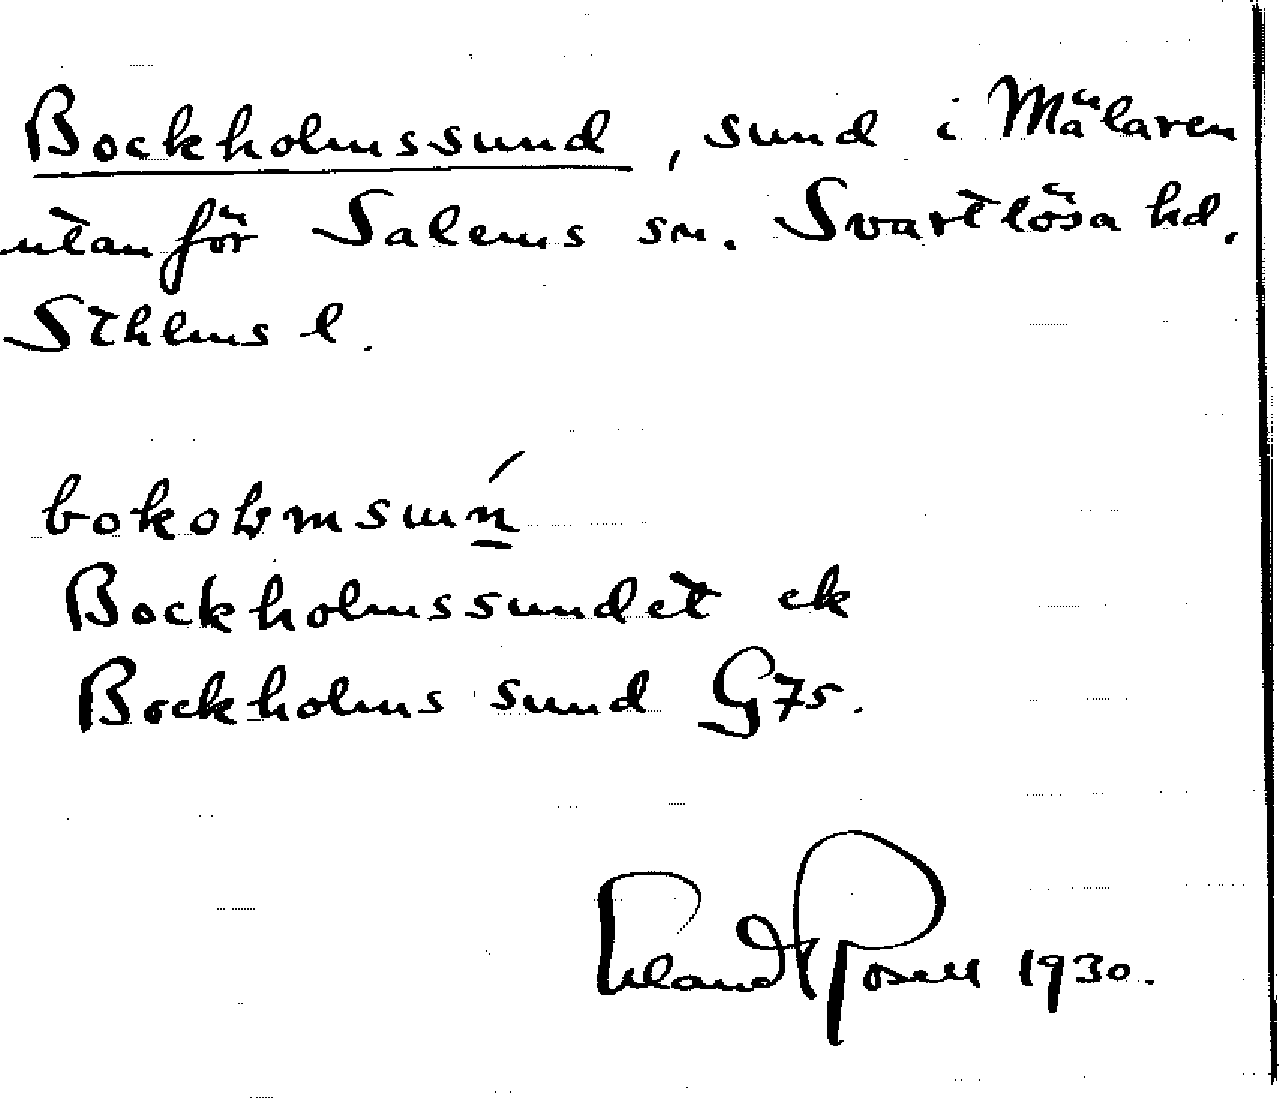 Bockholmssund, sund i Mälaren
utanför Salems sn. Svartlösa hd.
Sthlms l.
Bockholmssundet ek
Bockholms sund G75.
Erland Rosell 1930.